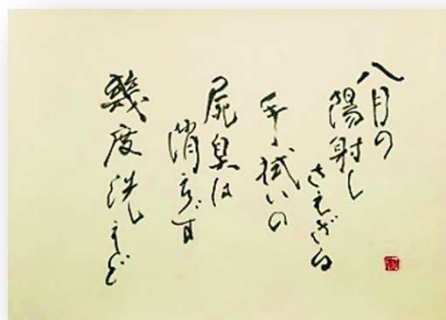 八月の
陽射し
さえぎる
手拭いの
屍臭は
消えず
幾度洗えど